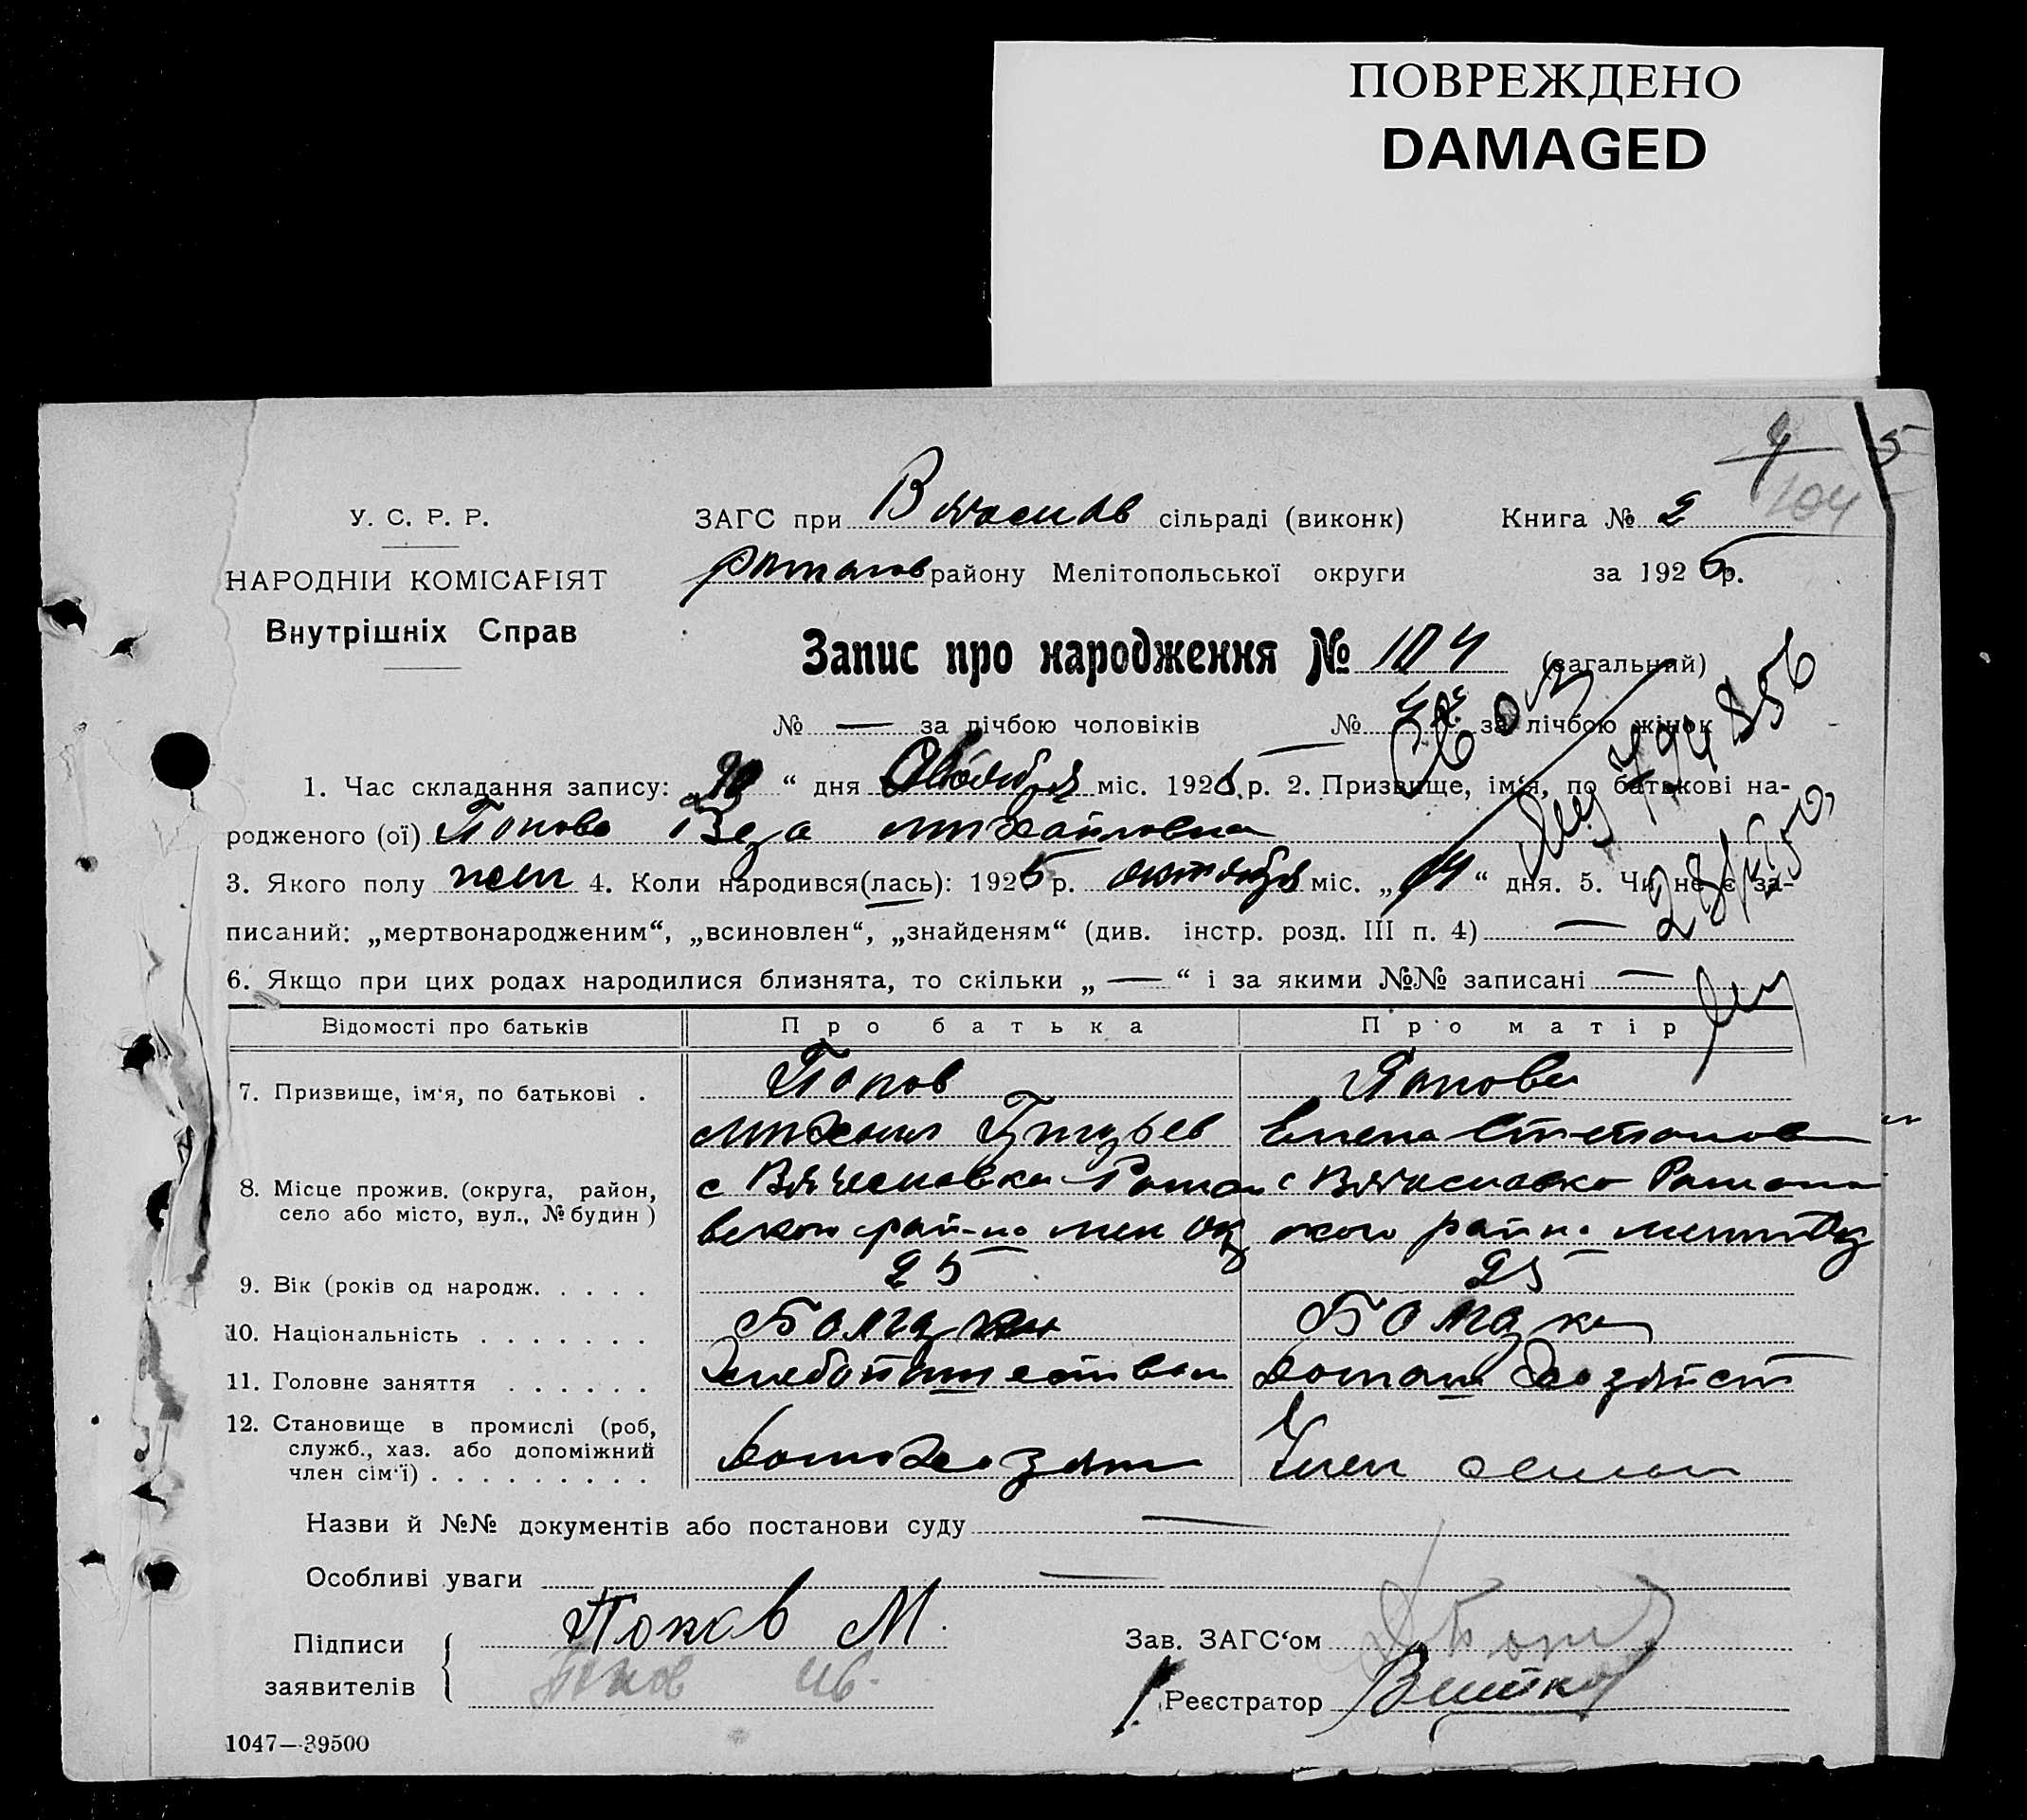 ПОВРЕЖДЕНО
DAMAGED
5
104
У. С. Р. Р.
НАРОДНІЙ КОМІСАРІЯТ
Внутрішніх Справ
ЗАГС при Вячеслав сільраді (виконк) Книга № 2
району Мелітопольської округи за 1925 р.
Запис про народження № 104 (загальний)
№ — за лічбою чоловіків № за лічбою жінок
1. Час складання запису: „20“ дня міс. 1925 р. 2. Призвище, ім'я, по батькові на-
родженого (ої) Попова Вера Михайловна
3. Якого полу жен 4. Коли народився(лась): 1925 р. октября міс. „14“ дня. 5. Чи не є за-
писаний: „мертвонародженим“, „всиновлен“, „знайденям“ (див. інстр. розд. III п. 4) —
6. Якщо при цих родах народилися близнята, то скільки „—“ і за якими №№ записані —
Відомості про батьків Про батька Про матір
7. Призвище, ім'я, по батькові . Попов Попова
Михаил Григорьев Елена Степанов
8. Місце прожив. (округа, район, с Вячеславка с Вячеславка
село або місто, вул., № будин) рай-на мел ок рай-на мелит Ок
9. Вік (років од народж. . . . . 25 25
10. Національність . . . . . . . Болгарин Болгарка
11. Головне заняття . . . . . . Хлебопашеством домаш хозяйст
12. Становище в промислі (роб,
служб., хаз. або допоміжний
член сім'ї) . . . . . . . . . домохозяин Член семьи
Назви й №№ документів або постанови суду —
Особливі уваги —
Підписи Попов М. Зав. ЗАГС'ом
заявителів Попов Ив. Реєстратор
1047—39500